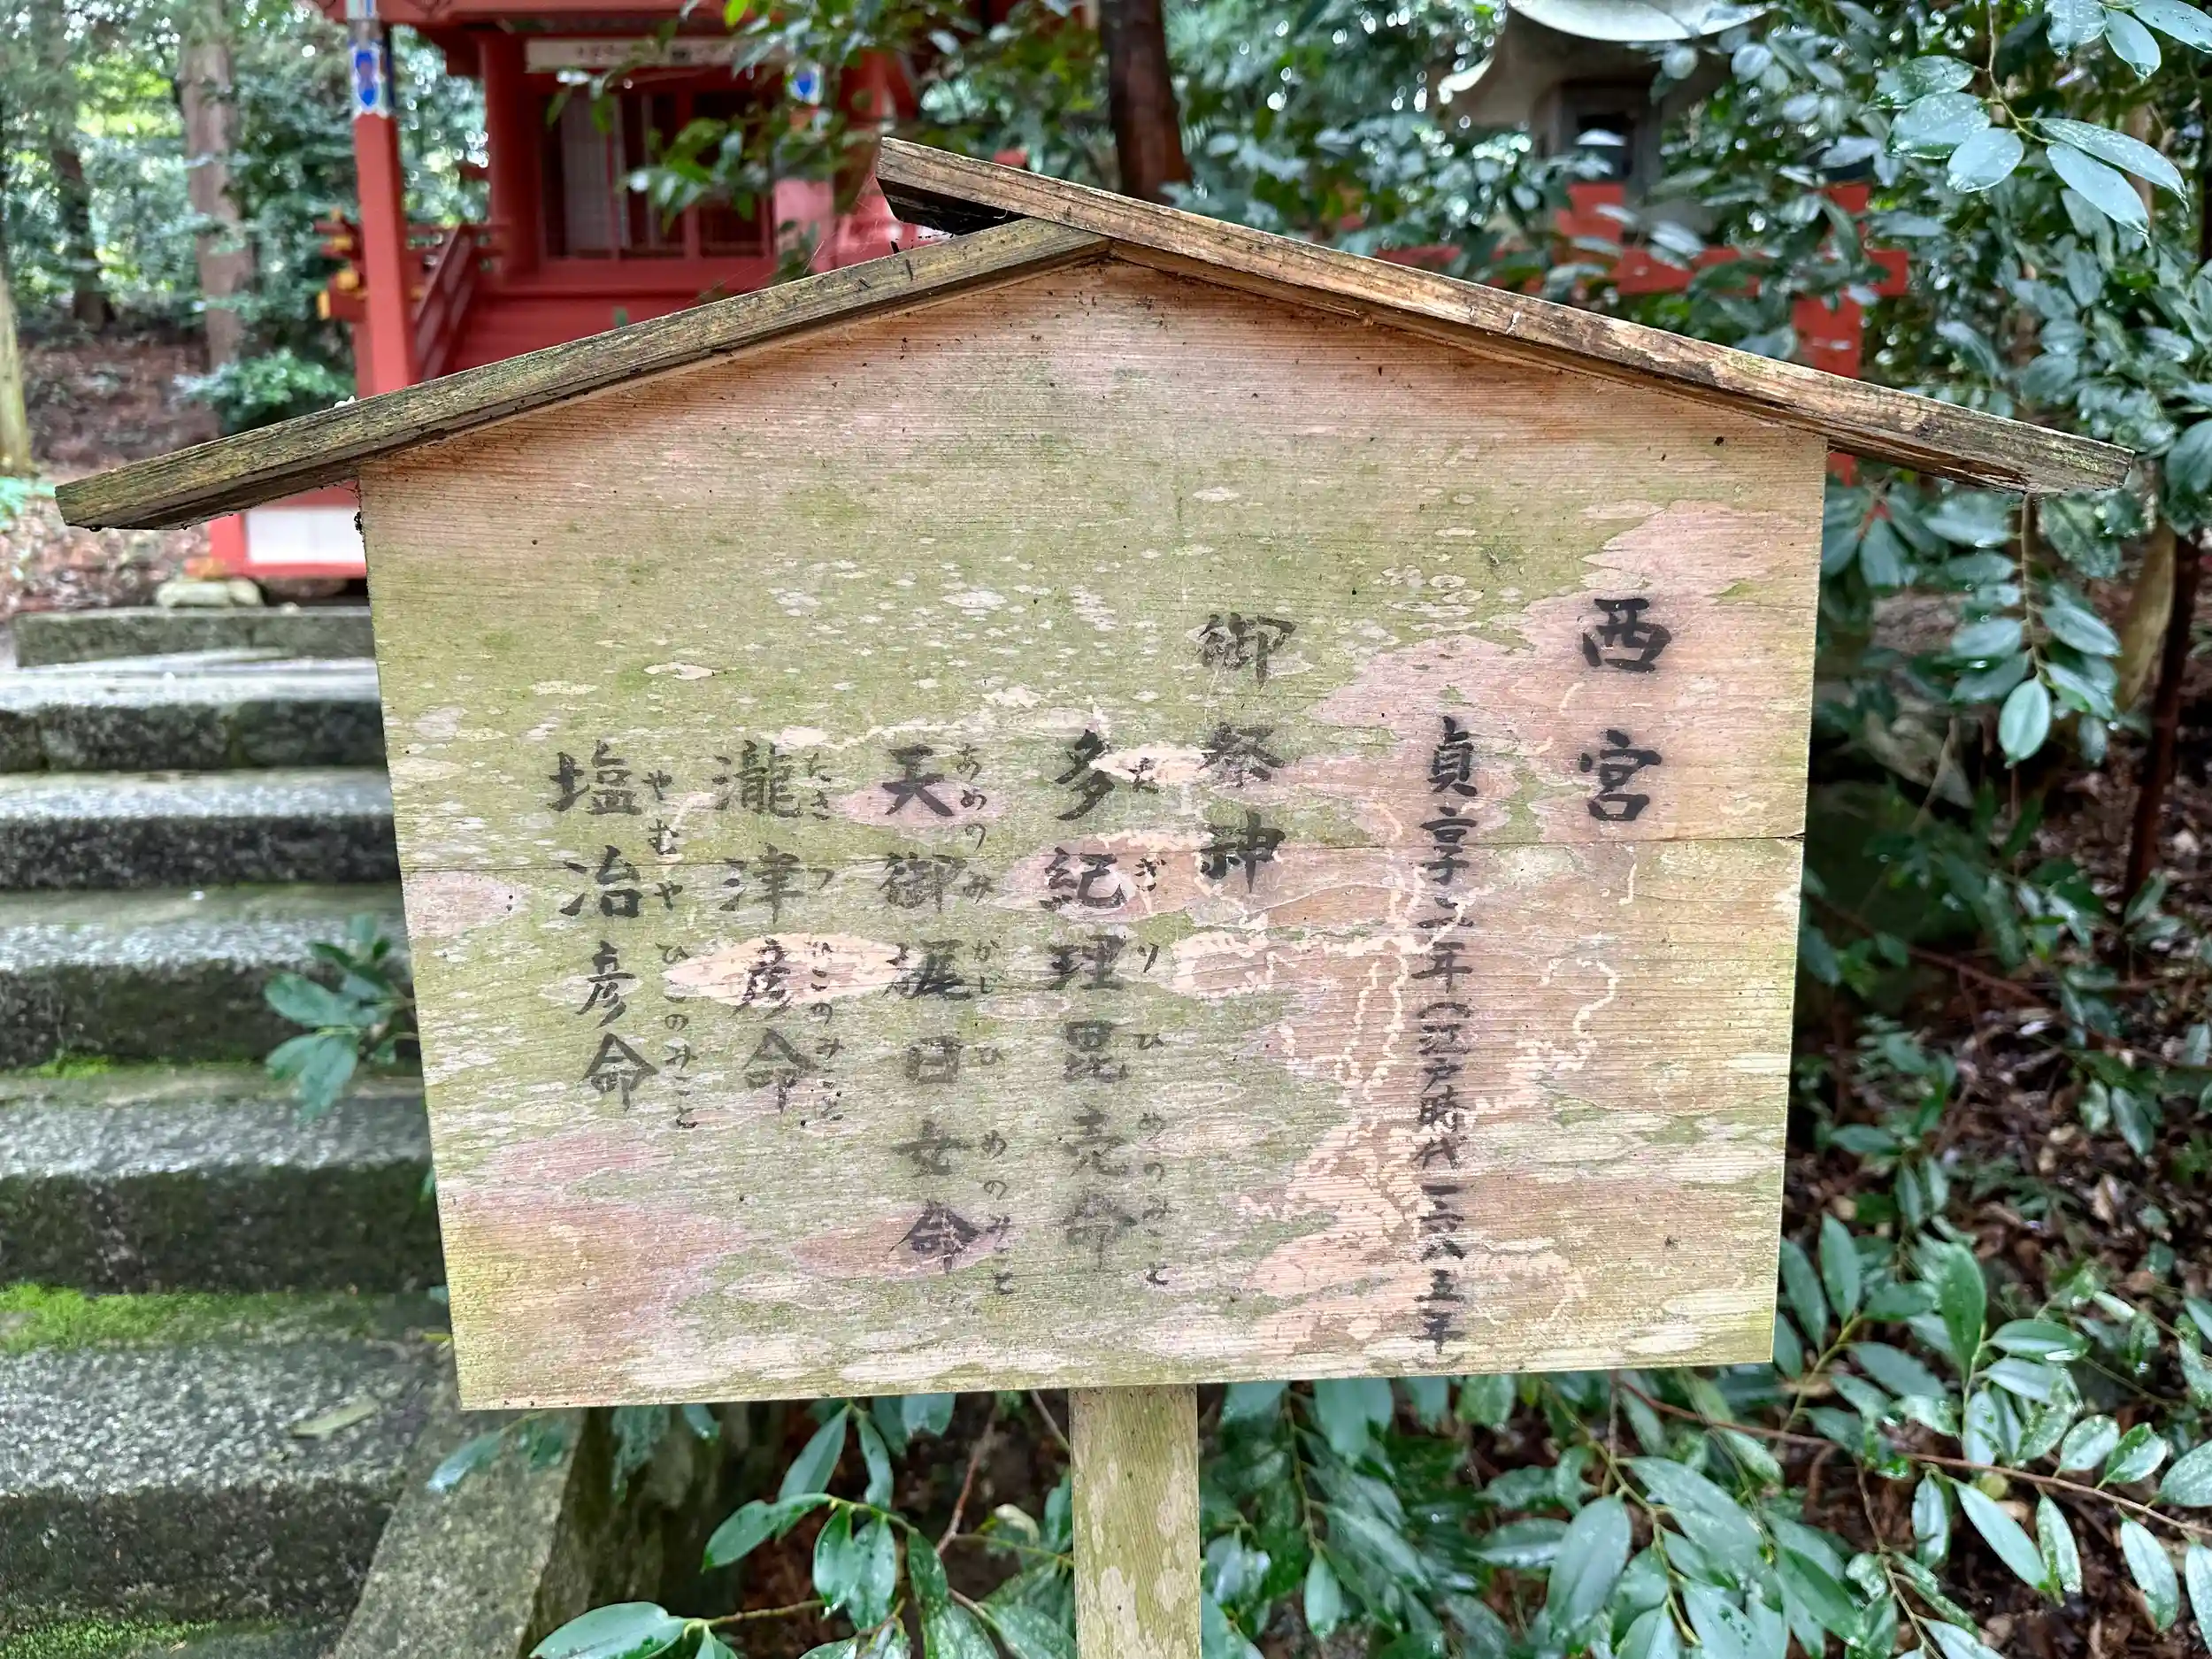 西宮
貞享二年(江戸時代一六八五年)
御祭神
たぎりひめのみこと
多紀理毘売命
あめのみかじひめのみこと
天御梶日女命
たきつひこのみこと
瀧津彦命
やむやひこのみこと
塩冶彦命